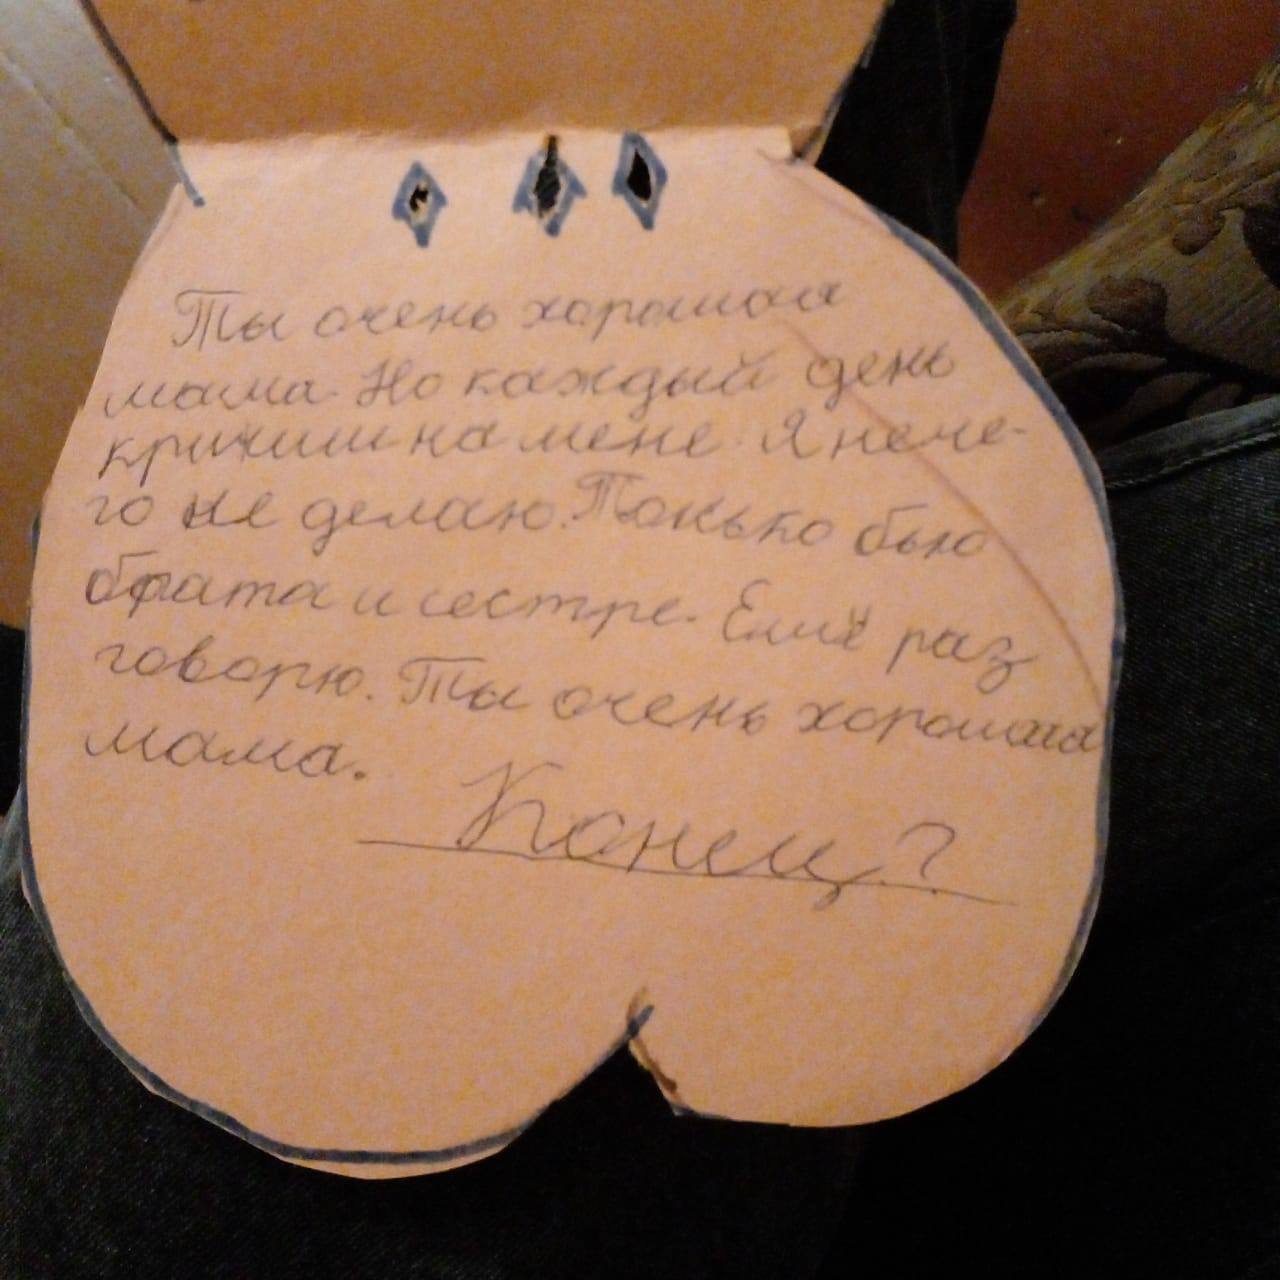 Ты очень хорошая
мама. Но каждый день
кричиш на мене. Я нече-
го не делаю. Только бью
брата и сестре. Ешё раз
говорю. Ты очень хорошая
мама.
Конец?